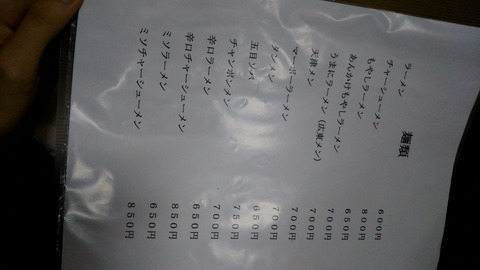 麺類
ラーメン 600円
チャーシューメン 800円
もやしラーメン 650円
あんかけもやしラーメン 700円
うまにラーメン(広東メン) 700円
天津メン 700円
マーボーラーメン 700円
タンメン 650円
五目ソバ 750円
チャンポンメン 700円
辛口ラーメン 650円
辛口チャーシューメン 850円
ミソラーメン 650円
ミソチャーシューメン 850円